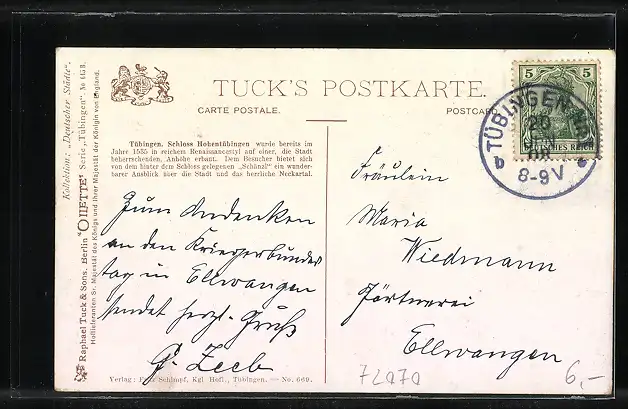 TUCK'S POSTKARTE.
CARTE POSTALE.
POSTCARD
Tübingen. Schloss Hohentübingen wurde bereits im
Jahre 1535 in reichem Renaissancestyl auf einer, die Stadt
beherrschenden, Anhöhe erbaut. Dem Besucher bietet sich
von dem hinter dem Schloss gelegenen „Schänzl" ein wunder-
barer Ausblick über die Stadt und das herrliche Neckartal.
Zum Andenken
an den Kriegerbundes
tag in Ellwangen
sendet herzl. Gruß
G. Zeeb
Fräulein
Maria
Wiedmann
Gärtnerei
Ellwangen
5 5
DEUTSCHES REICH
TÜBINGEN
b
8-9V
Kollektion: „Deutscher Städte".
Raphael Tuck & Sons, Berlin "OILETTE" Serie „Tübingen" No 615B.
Hoflieferanten Sr. Majestät des Königs und Ihrer Majestät der Königin von England.
Verlag: Schimpf, Kgl Hofl., Tübingen. — No. 669.
72070
6,-